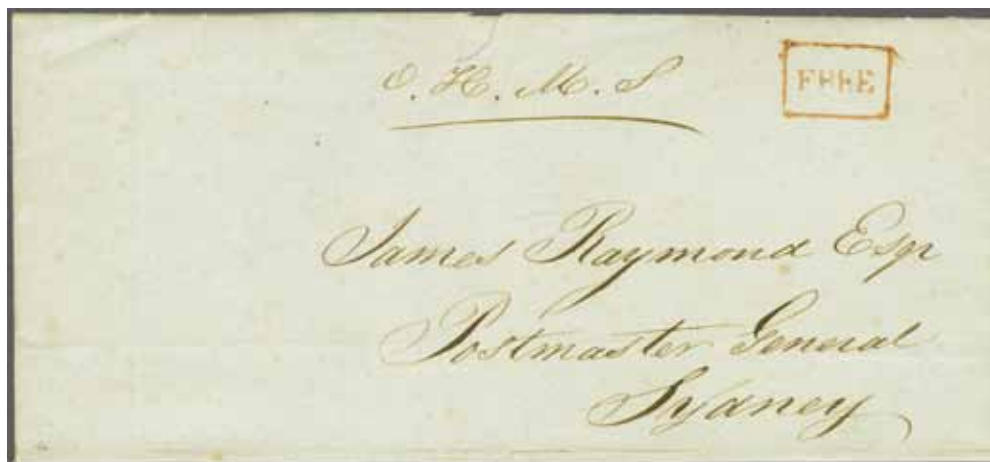 O. H. M. S
FREE
James Raymond Esqr
Postmaster General
Sydney